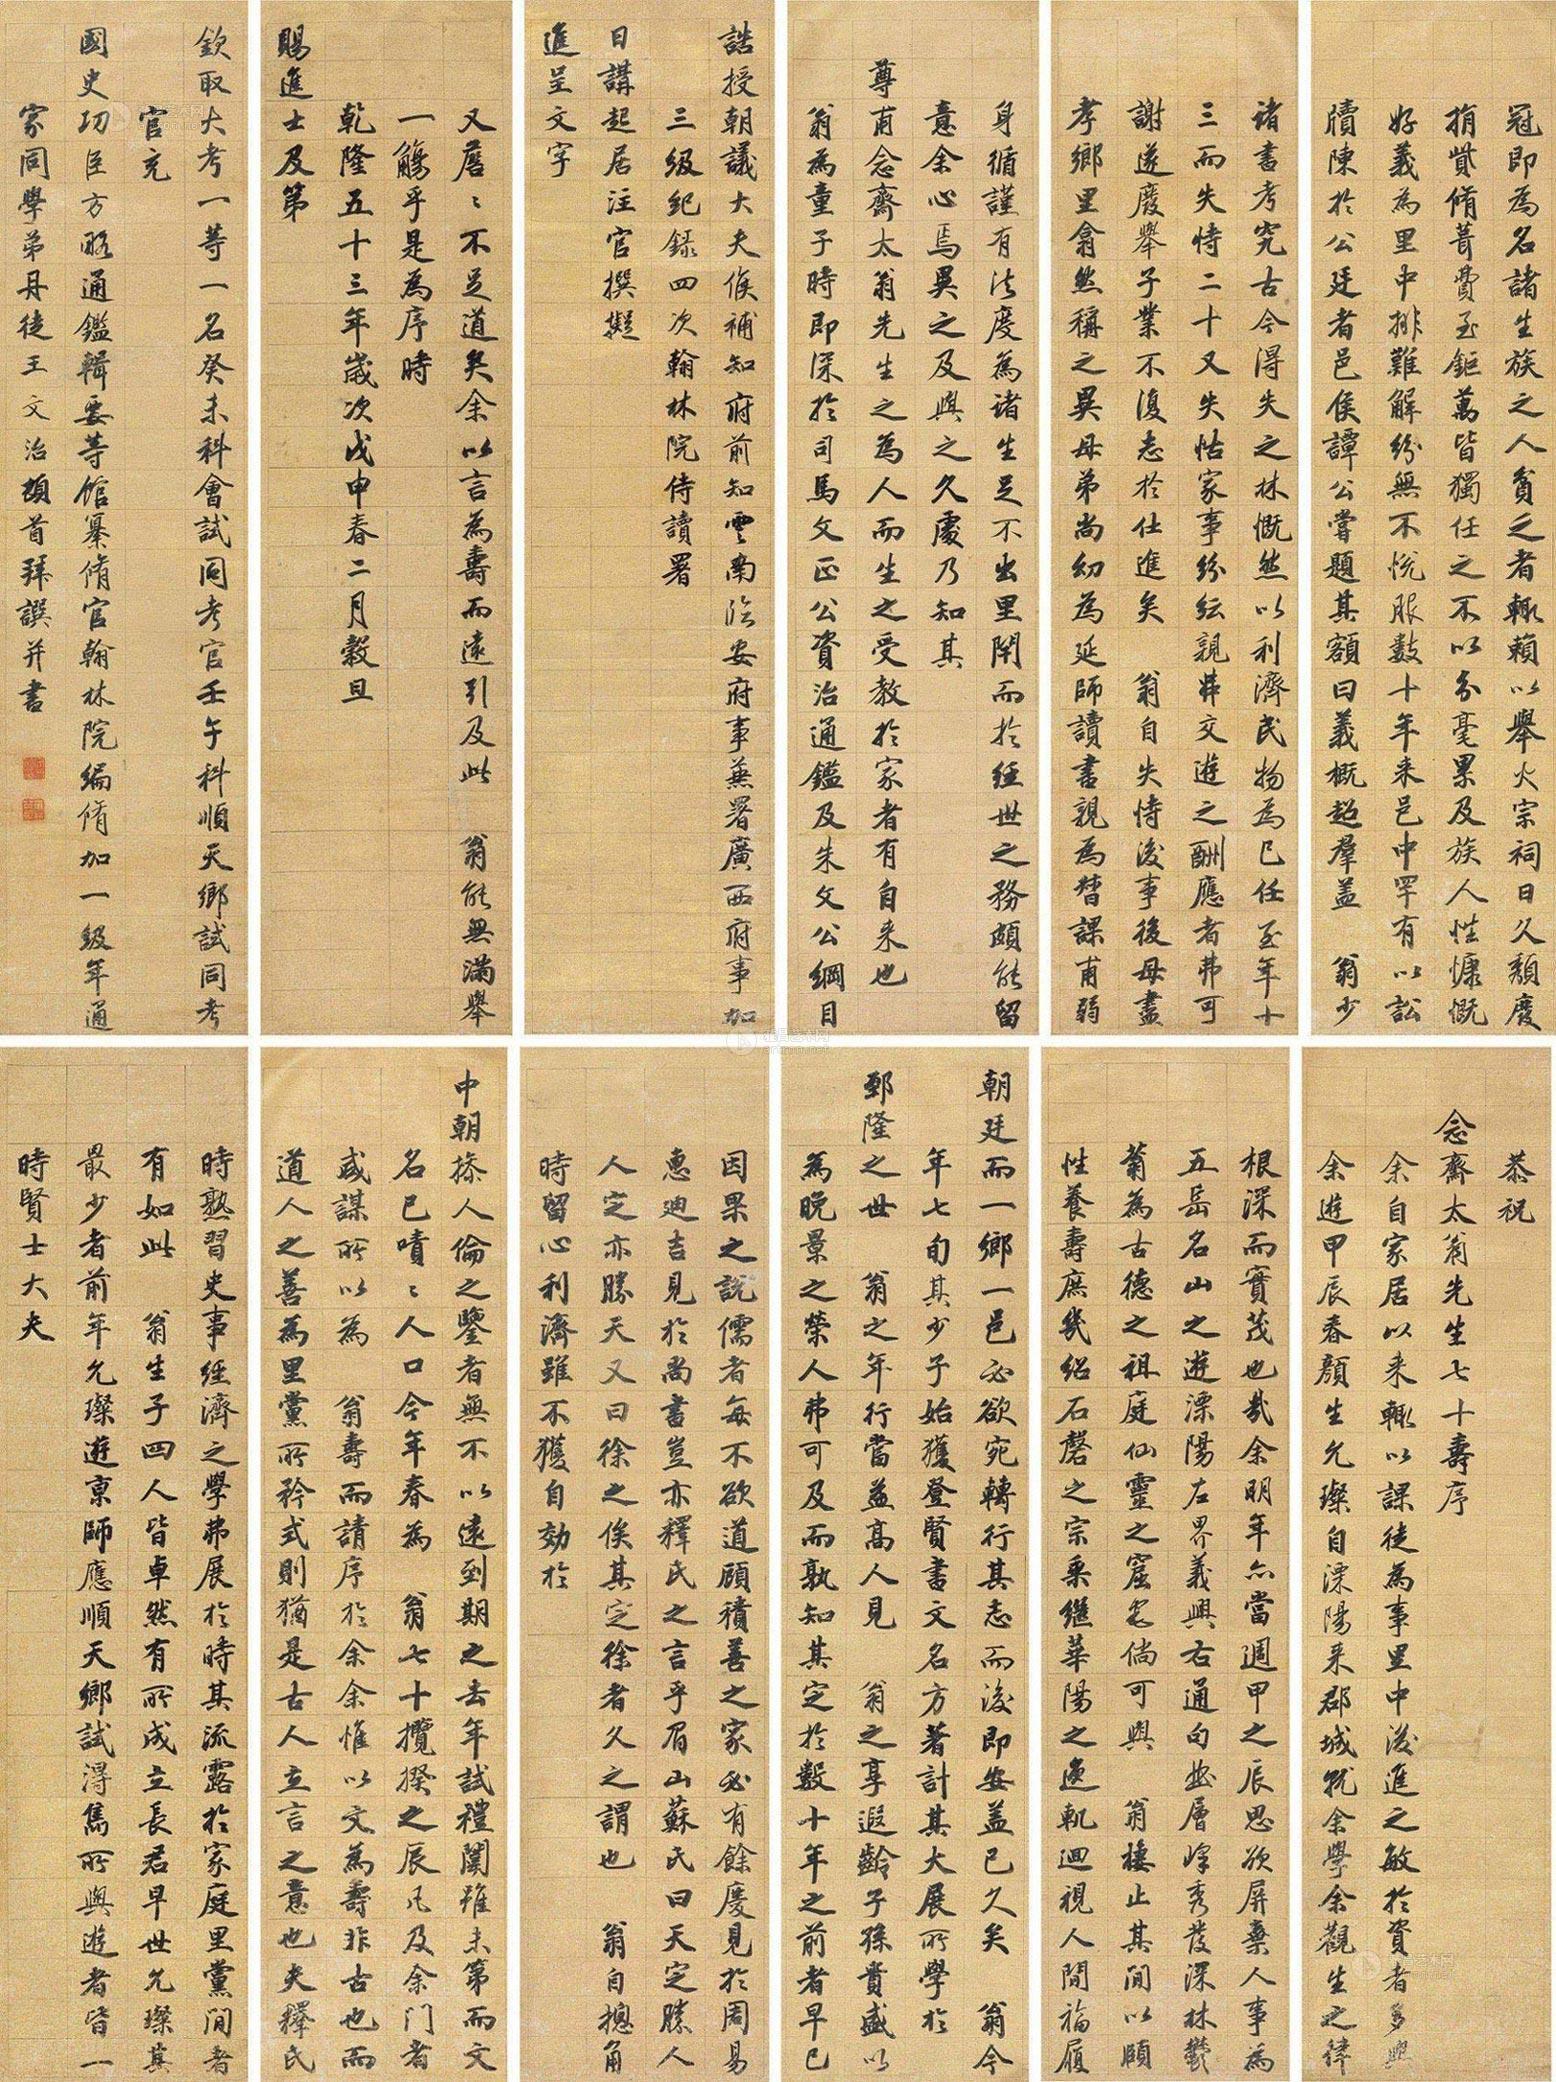 恭祝
念齋太翁先生七十壽序
余自家居以来輙以課徒為事里中後進之敏於資者多與
余遊甲辰春顏生允璨自溧陽来郡城就余學余觀生之律
身循謹有法度為諸生足不出里閈而於經世之務頗能留
意余心焉異之及與之久處乃知其
尊甫念齋太翁先生之為人而生之受教於家者有自来也
翁為童子時即深於司馬文正公資治通鑑及朱文公綱目
諸書考究古今得失之林慨然以利濟民物為己任至年十
三而失恃二十又失怙家事紛紜親弗交遊之酬應者弗可
謝遂廢舉子業不復志於仕進矣 翁自失恃後事後母盡
孝鄉里翕然稱之異母弟尚幼為延師讀書親為督課甫弱
冠即為名諸生族之人貧之者輙賴以舉火宗祠日久頹廢
捐貲脩葺費至鉅萬皆獨任之不以分毫累及族人性慷慨
好義為里中排難解紛無不悅服數十年来邑中罕有以訟
牘陳於公廷者邑侯譚公嘗題其額曰義概超羣蓋 翁少
時熟習史事經濟之學弗展於時其流露於家庭里黨間者
有如此 翁生子四人皆卓然有所成立長君早世允璨其
最少者前年允璨遊京師應順天鄉試得雋所與遊者皆一
時賢士大夫
中朝操人倫之鑒者無不以遠到期之去年試禮闈雖未第而文
名已嘖〻人口今年春為 翁七十攬揆之辰凡及余門者
咸謀所以為 翁壽而請序於余余惟以文為壽非古也而
道人之善為里黨所矜式則猶是古人立言之意也夫釋氏
因果之說儒者每不欲道顧積善之家必有餘慶見於周易
惠迪吉見於尚書豈亦釋氏之言乎眉山蘇氏曰天定勝人
人定亦勝天又曰徐之俟其定徐者久之謂也 翁自摠角
時留心利濟雖不獲自効於
朝廷而一鄉一邑必欲宛轉行其志而後即安蓋已久矣 翁今
年七旬其少子始獲登賢書文名方著計其大展所學於
郅隆之世 翁之年行當益高人見 翁之享遐齡子孫貴盛以
為晚景之榮人弗可及而孰知其定於數十年之前者早已
根深而實茂也哉余明年亦當週甲之辰思欲屏棄人事為
五岳名山之遊溧陽左界義興右通句曲層峰秀發深林鬱
蓊為古德之祖庭仙靈之窟宅倘可與 翁棲止其間以頤
性養壽庶幾紹石磬之宗乘繼華陽之逸軌迴視人間福履
又㕑〻不足道矣余以言為壽而遠引及此 翁能無滿舉
一觴乎是為序時
乾隆五十三年歲次戊申春二月穀旦
賜進士及第
誥授朝議大夫候補知府前知雲南臨安府事兼署廣西府事加
三級紀錄四次翰林院侍讀署
日講起居注官撰擬
進呈文字
欽取大考一等一名癸未科會試同考官壬午科順天鄉試同考
官充
國史功臣方畧通鑑輯要等館纂脩官翰林院編脩加一級年通
家同學弟丹徒王文治頓首拜譔并書